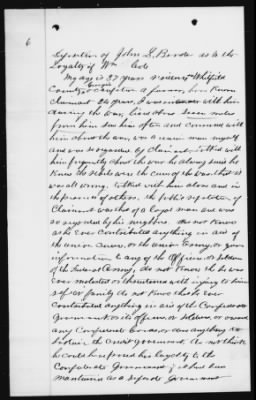 6
Deposition of John S. Bowder as to the
Loyalty of Wm Cobb
My age is 37 years residence Whitfield
County Georgia occupation a farmer, have Known
Claimant 24 years, I was with
him during the war, lived about seven miles
from him saw him often and conversed with
him about the war, was a union man myself
and was so regarded by Claimant, talked with
him frequently about the war he always said he
Knew the rebels were the cause of the war that it
was all wrong. talked with him alone and in
the presence of others. the public reputation of
Claimant was that of a loyal man and was
so regarded by his neighbors. do not Know
as he ever contributed anything in aid of
the union cause, or the union army, or gave
information to any of the Officers or soldiers
of the Federal Army, do not Know that he was
ever molested or threatened with injury to him
self or family do not Know that he ever
contributed anything in aid of the Confederate
Government or its officers, or soldiers, or owned
any Confederate bonds, or done anything to
injure the credit government. do not think
he could have proved his loyalty to the
Confederate Government if it had been
maintained as a seperate Government